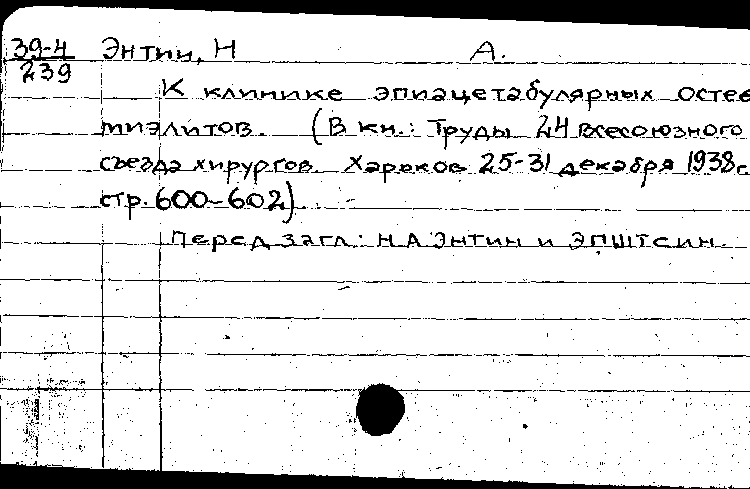 39-4 Энтин, Н А.
239
К клинике эпиацетабулярных остео
миэлитов. (В кн.: Труды 24 всесоюзного
съезда хирургов. Харьков 25-31 декабря 1938г.
стр. 600-602)
Перед загл.: Н А Энтин и Эпштеин.